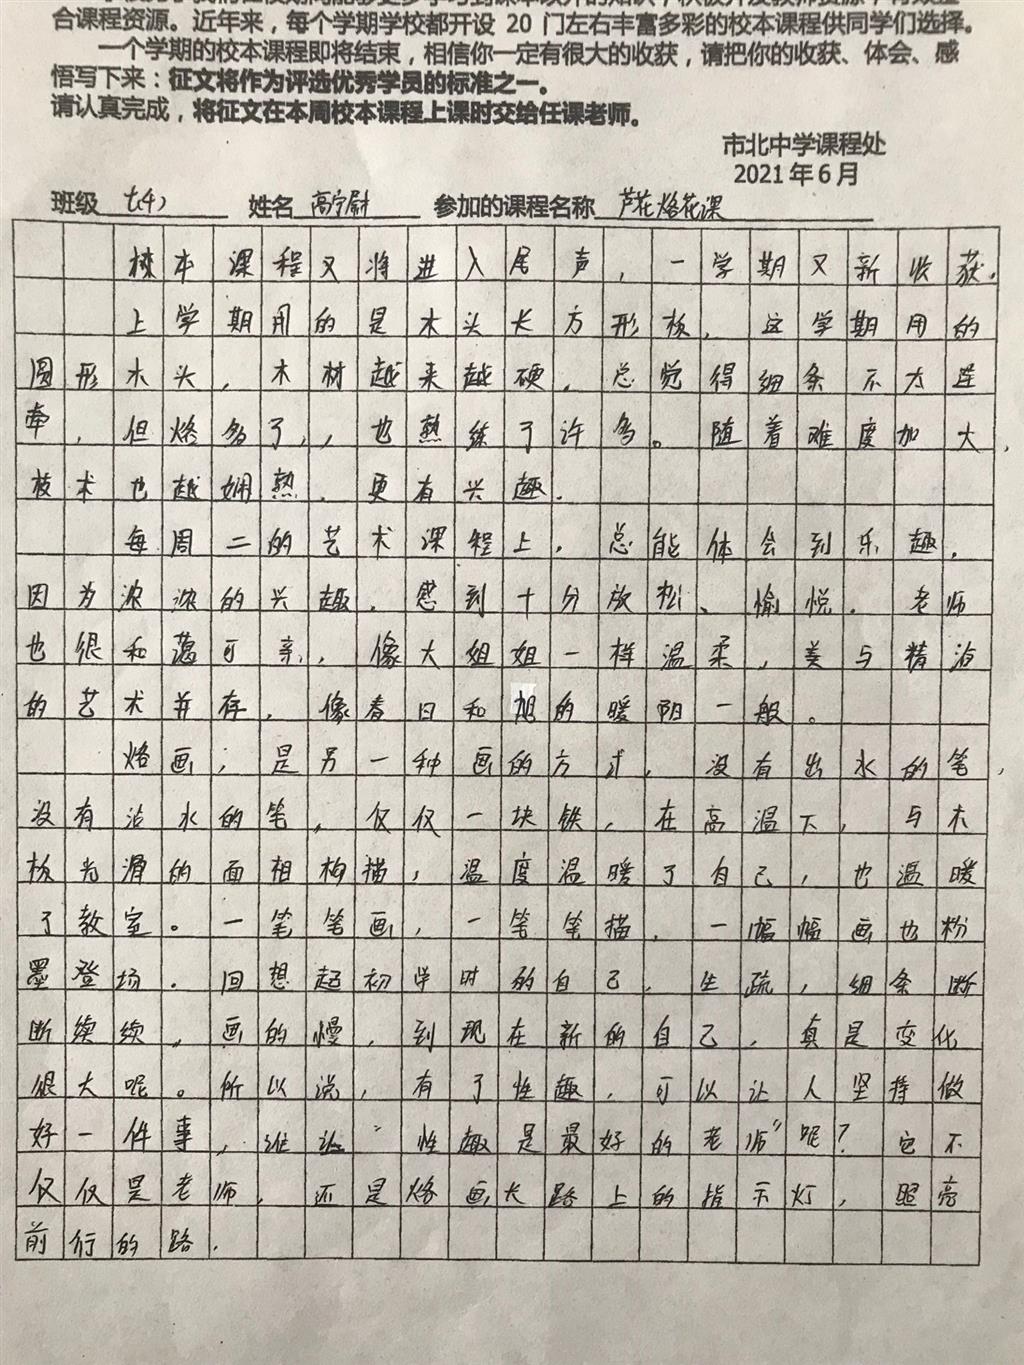 合课程资源。近年来，每个学期学校都开设 20 门左右丰富多彩的校本课程供同学们选择。
一个学期的校本课程即将结束，相信你一定有很大的收获，请把你的收获、体会、感
悟写下来：征文将作为评选优秀学员的标准之一。
请认真完成，将征文在本周校本课程上课时交给任课老师。
市北中学课程处
2021 年 6 月
班级 七(4) 姓名 高宁尉 参加的课程名称 芦花烙花课
校本课程又将进入尾声，一学期又新收获.
上学期用的是木头长方形板，这学期用的
圆形木头，木材越来越硬，总觉得细条不太连
牵，但烙多了，，也熟练了许多。随着难度加大，
技术也越娴熟，更有兴趣.
每周二的艺术课程上，总能体会到乐趣，
因为浓浓的兴趣，感到十分放松、愉悦. 老师
也很和蔼可亲，像大姐姐一样温柔，美与精治
的艺术并存，像春日和旭的暖阳一般。
烙画，是另一种画的方式，没有出水的笔，
没有沾水的笔，仅仅一块铁，在高温下，与木
板光滑的面相构描，温度温暖了自己，也温暖
了教室。一笔笔画，一笔笔描，一幅幅画也粉
墨登场. 回想起初学时的自己，生疏，细条断
断续续，画的慢，到现在新的自己，真是变化
很大呢。所以说，有了性趣，可以让人坚持做
好一件事，谁让“性趣是最好的老师”呢？它不
仅仅是老师，还是烙画长路上的指示灯，照亮
前行的路.